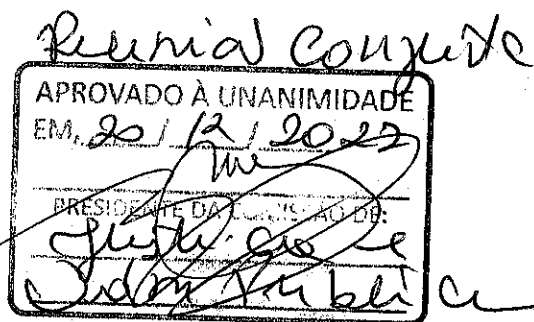 Reunião Conjunta
APROVADO À UNANIMIDADE
EM, 20 / 12 / 2022
PRESIDENTE DA COMISSÃO DE:
Justiça e
Pública